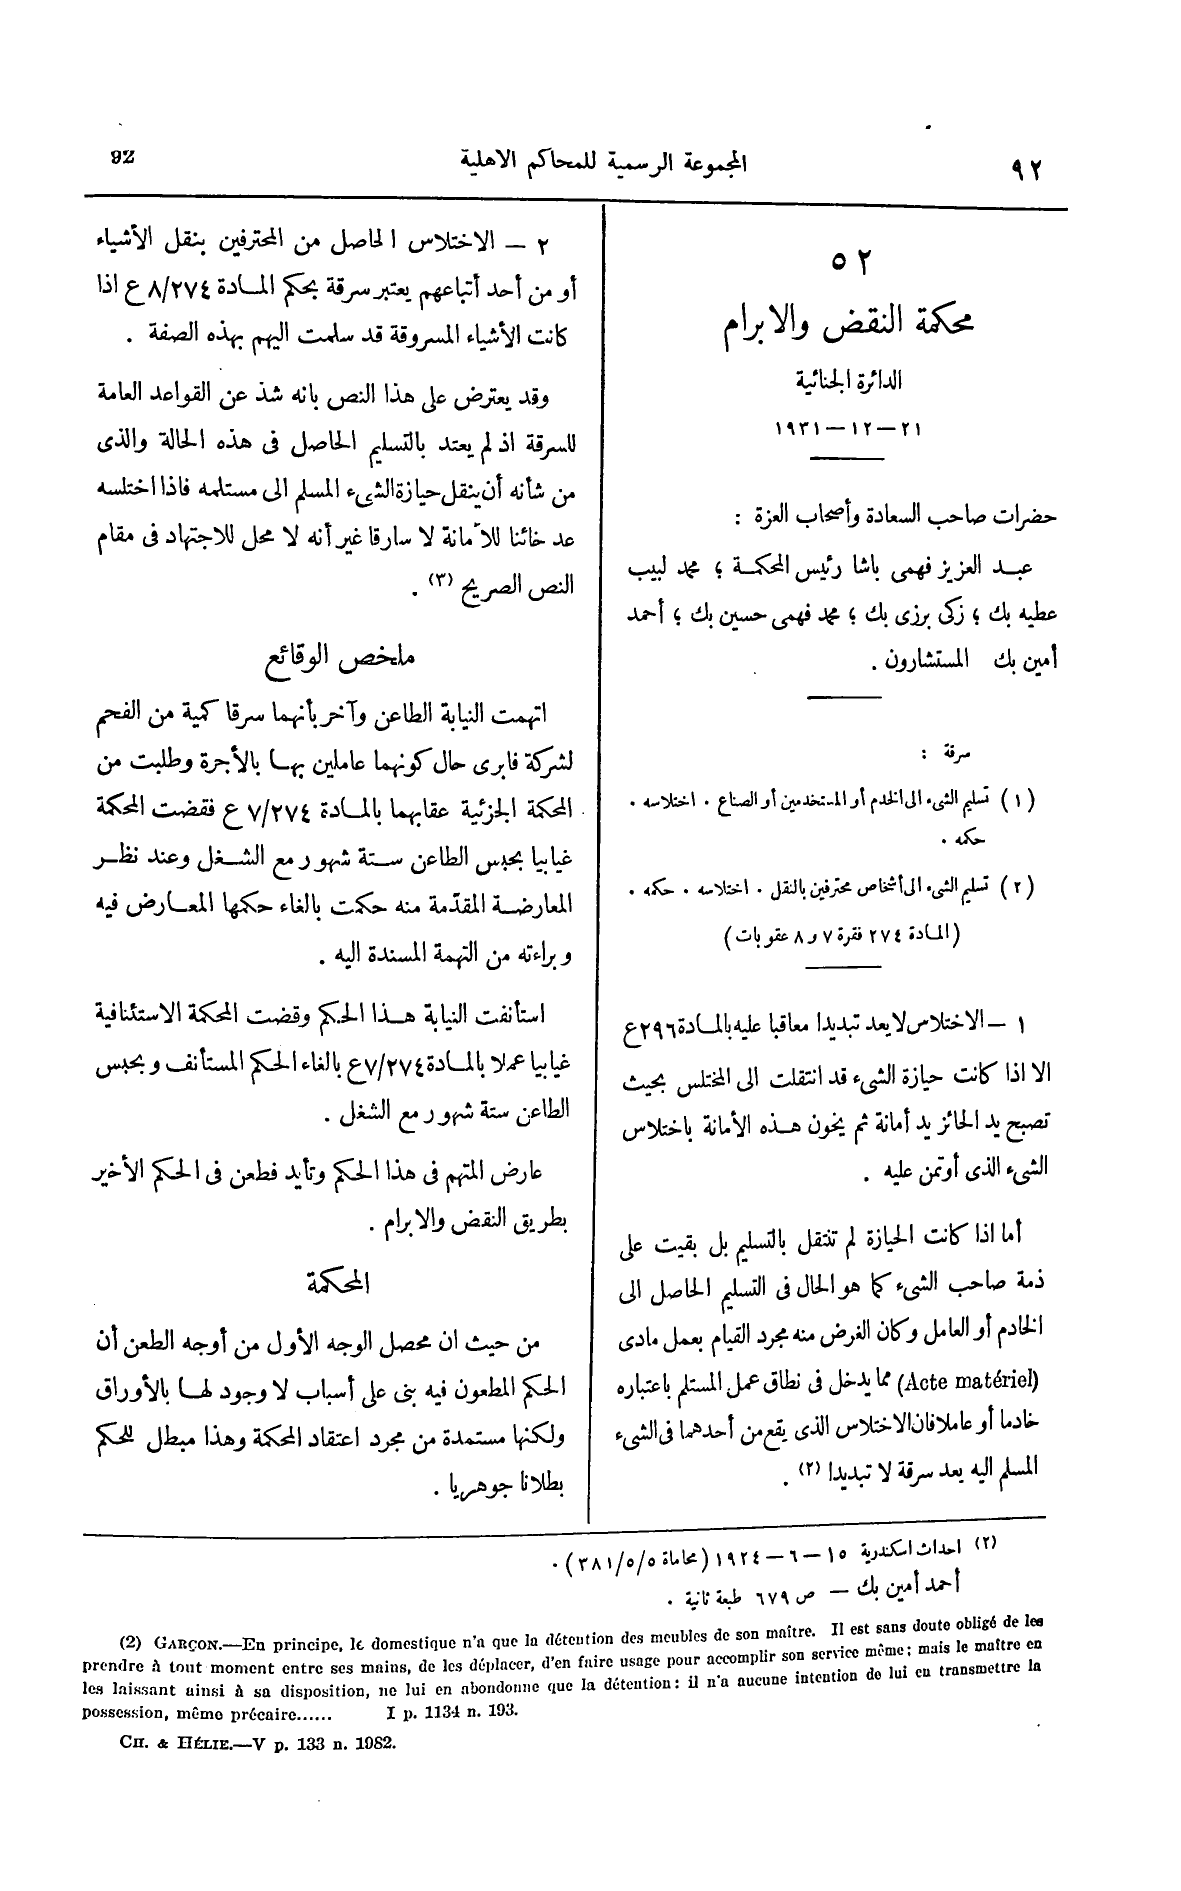 ٩٢
المجموعة الرسمية للمحاكم الاهلية
92
٥٢
محكمة النقض والابرام
الدائرة الجنائية
٢١ — ١٢ — ١٩٣١
حضرات صاحب السعادة وأصحاب العزة :
عبد العزيز فهمى باشا رئيس المحكمة ؛ محمد لبيب
عطيه بك ؛ زكى برزى بك ؛ محمد فهمى حسين بك ؛ أحمد
أمين بك المستشارون .
سرقة :
(١) تسليم الشىء الى الخدم أو المستخدمين أو الصناع . اختلاسه .
حكمه .
(٢) تسليم الشىء الى أشخاص محترفين بالنقل . اختلاسه . حكمه .
(المادة ٢٧٤ فقرة ٧ و ٨ عقوبات)
١ — الاختلاس لا يعد تبديدا معاقبا عليه بالمادة ٢٩٦ ع
الا اذا كانت حيازة الشىء قد انتقلت الى المختلس بحيث
تصبح يد الحائز يد أمانة ثم يخون هذه الأمانة باختلاس
الشىء الذى أوتمن عليه .
أما اذا كانت الحيازة لم تنتقل بالتسليم بل بقيت على
ذمة صاحب الشىء كما هو الحال فى التسليم الحاصل الى
الخادم أو العامل وكان الغرض منه مجرد القيام بعمل مادى
(Acte matériel) مما يدخل فى نطاق عمل المستلم باعتباره
خادما أو عاملا فان الاختلاس الذى يقع من أحدهما فى الشىء
المسلم اليه يعد سرقة لا تبديدا (٢) .
٢ — الاختلاس الحاصل من المحترفين بنقل الأشياء
أو من أحد أتباعهم يعتبر سرقة بحكم المادة ٨/٢٧٤ ع اذا
كانت الأشياء المسروقة قد سلمت اليهم بهذه الصفة .
وقد يعترض على هذا النص بانه شذ عن القواعد العامة
للسرقة اذ لم يعتد بالتسليم الحاصل فى هذه الحالة والذى
من شأنه أن ينقل حيازة الشىء المسلم الى مستلمه فاذا اختلسه
عد خائنا للأمانة لا سارقا غير أنه لا محل للاجتهاد فى مقام
النص الصريح (٣) .
ملخص الوقائع
اتهمت النيابة الطاعن وآخر بأنهما سرقا كمية من الفحم
لشركة فابرى حال كونهما عاملين بها بالأجرة وطلبت من
المحكمة الجزئية عقابهما بالمادة ٧/٢٧٤ ع فقضت المحكمة
غيابيا بحبس الطاعن ستة شهور مع الشغل وعند نظر
المعارضة المقدّمة منه حكمت بالغاء حكمها المعارض فيه
وبراءته من التهمة المسندة اليه .
استأنفت النيابة هذا الحكم وقضت المحكمة الاستئنافية
غيابيا عملا بالمادة ٧/٢٧٤ ع بالغاء الحكم المستأنف وبحبس
الطاعن ستة شهور مع الشغل .
عارض المتهم فى هذا الحكم وتأيد فطعن فى الحكم الأخير
بطريق النقض والابرام .
المحكمة
من حيث ان محصل الوجه الأول من أوجه الطعن أن
الحكم المطعون فيه بنى على أسباب لا وجود لها بالأوراق
ولكنها مستمدة من مجرد اعتقاد المحكمة وهذا مبطل للحكم
بطلانا جوهريا .
(٢) احداث اسكندرية ١٥ — ٦ — ١٩٢٤ (محاماة ٣٨١/٥/٥) .
أحمد أمين بك — ص ٦٧٩ طبعة ثانية .
(2) GARÇON.—En principe, le domestique n'a que la détention des meubles de son maître. Il est sans doute obligé de les
prendre à tout moment entre ses mains, de les déplacer, d'en faire usage pour accomplir son service même; mais le maître en
les laissant ainsi à sa disposition, ne lui en abondonne que la détention: il n'a aucune intention de lui en transmettre la
possession, même précaire...... I p. 1134 n. 193.
CH. & HÉLIE.—V p. 133 n. 1982.